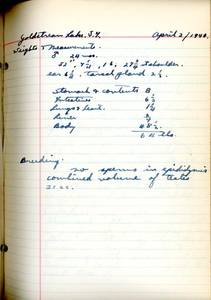 Goldstream Lake, B.C. April 2/1940.
Weights & Measurements.
♂ 24 mos.
52", 7 1/4, 16, 27 1/2 shoulder.
ear 6 1/2, tarsal gland 2 1/2.
Stomach & contents 8
Intestines 6 1/2
Lungs & heart 1 3/4
Liver
Body 48 1/2
lbs.
Breeding.
no sperms in epididymis
combined volume of testes
21 cc.